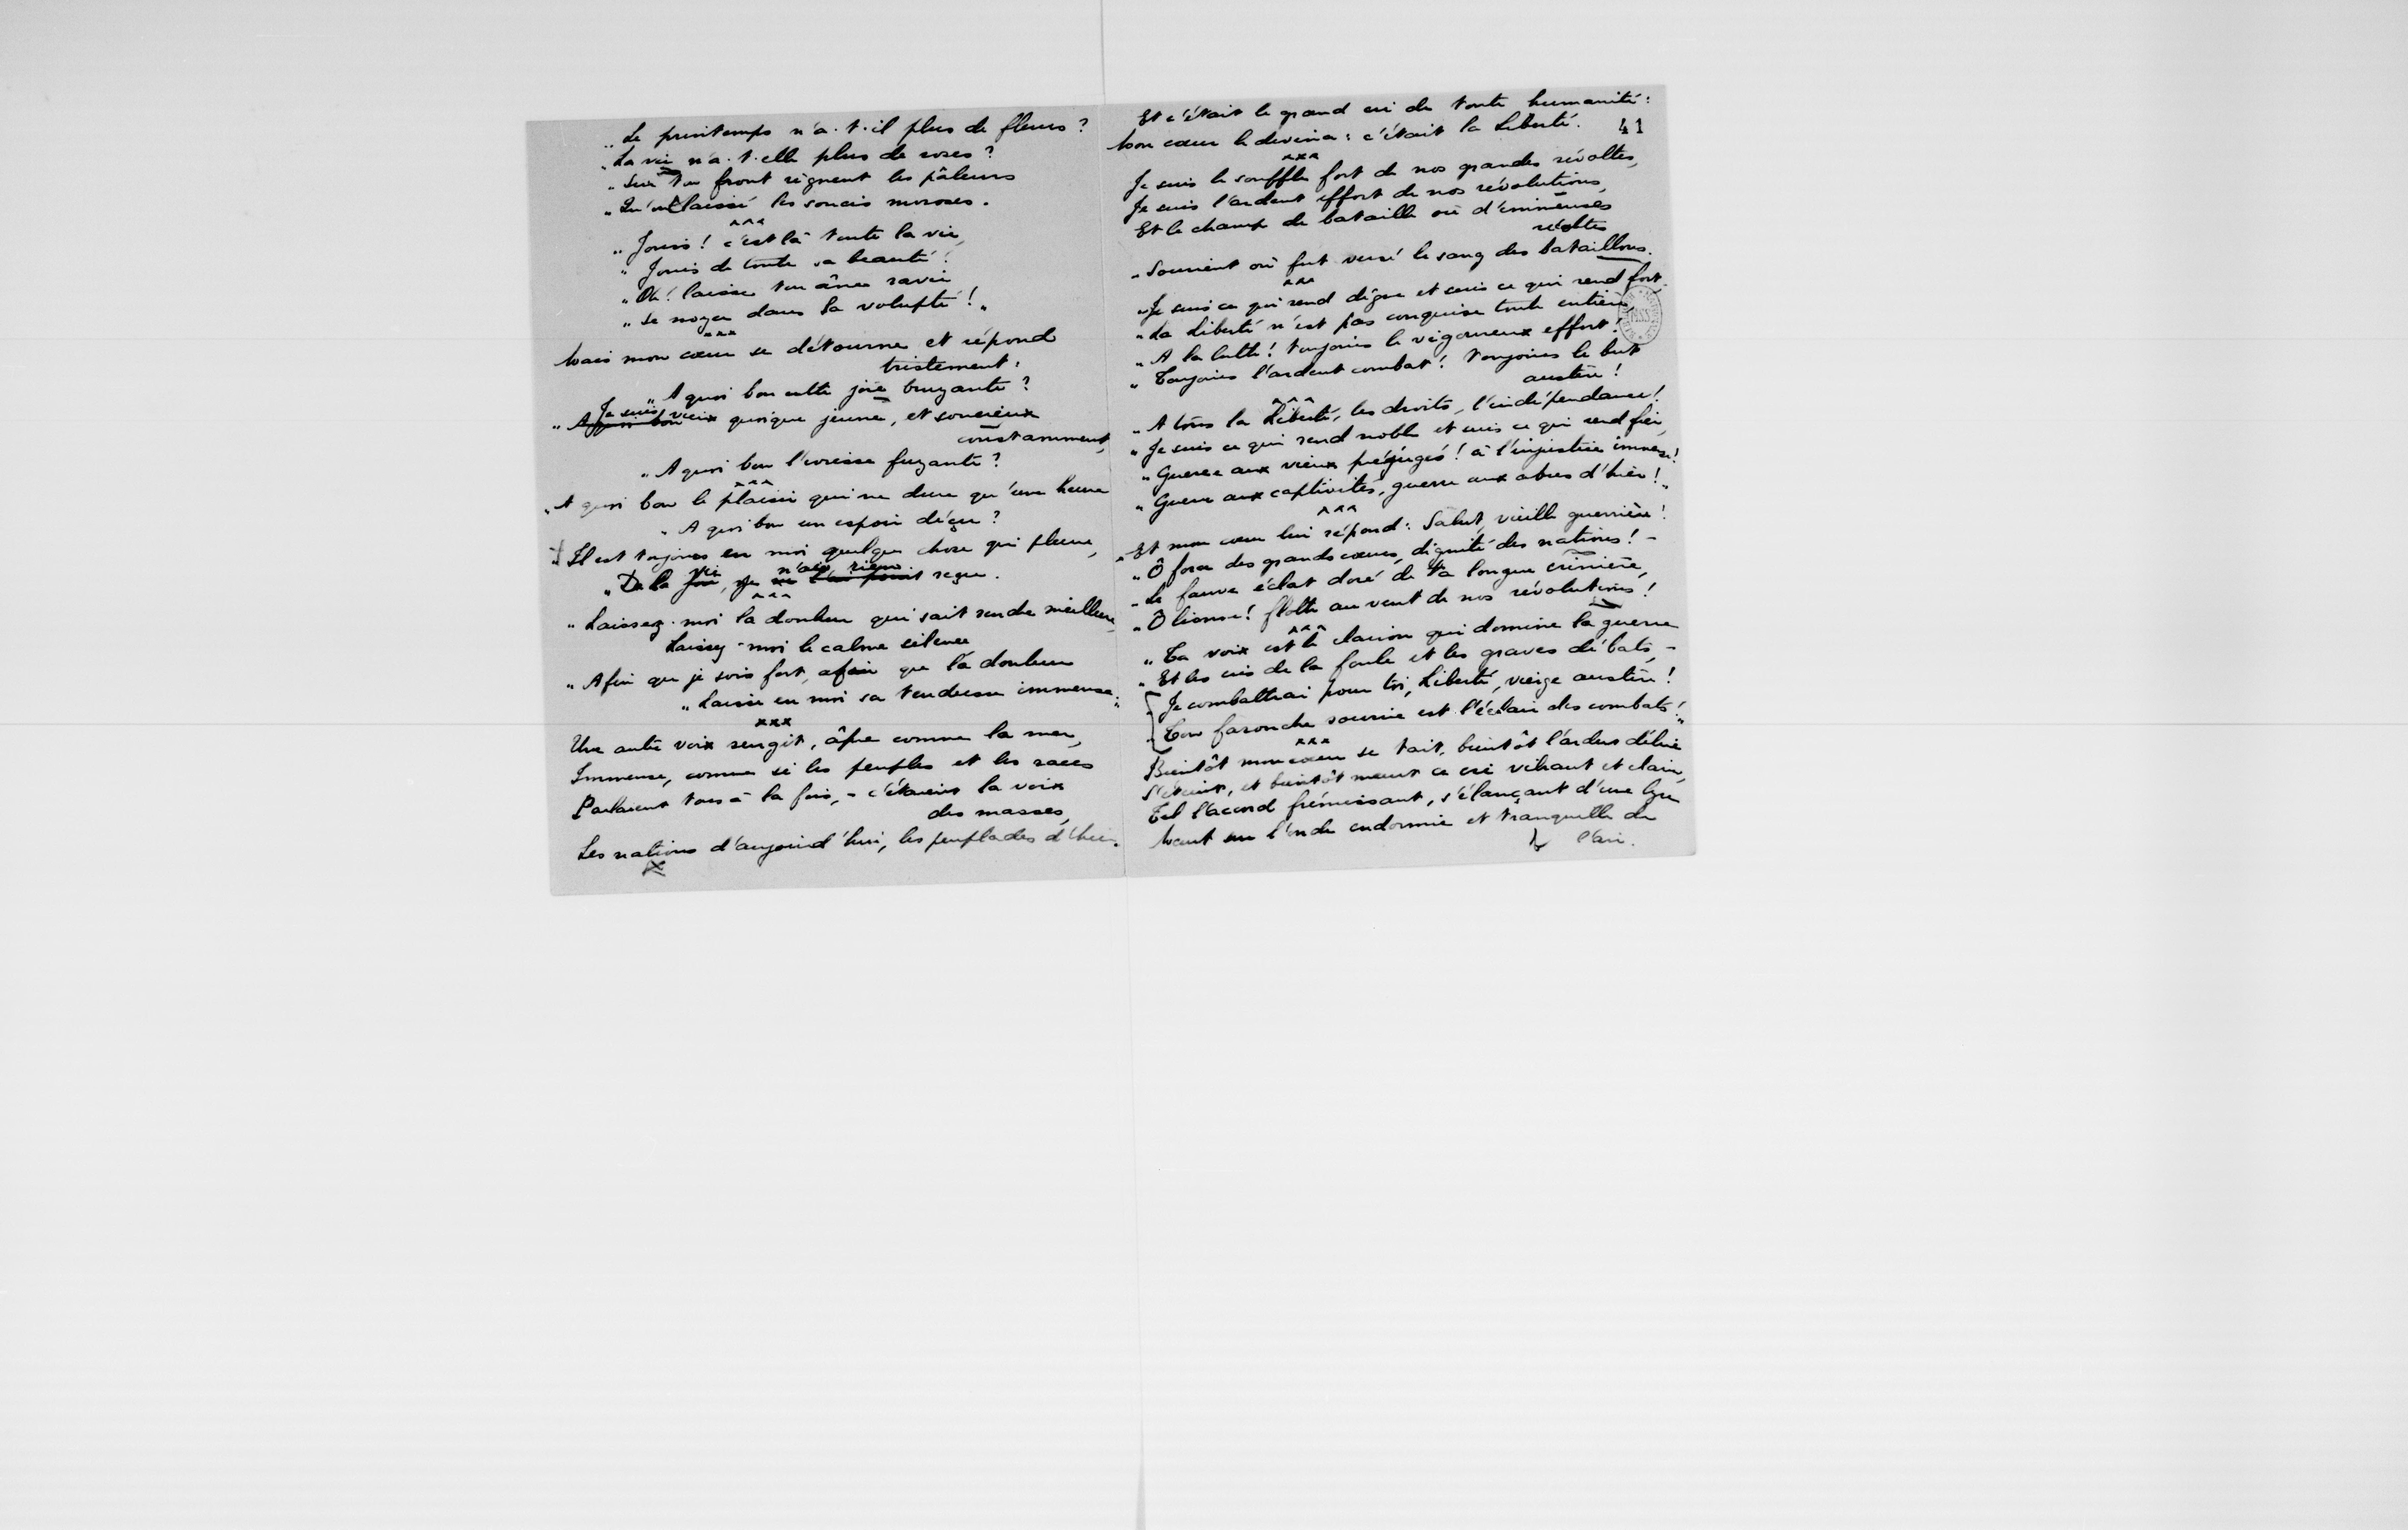 „ Le printemps n'a-t-il plus de fleurs ?
„ La vie n'a-t-elle plus de roses ?
„ Sur ton front règnent les pâleurs
„ Qu'ont laissé les soucis moroses.
xxx
„ Jouis ! c'est là toute la vie,
„ Jouis de toute sa beauté !
„ Oh ! laisse ton âme ravie
„ Se noyer dans la volupté ! „
xxx
Mais mon cœur se détourne et répond
tristement :
„ A quoi bon cette joie bruyante ?
„ Je suis vieux quoique jeune, et soucieux
constamment,
„ A quoi bon l'ivresse fuyante ?
xxx
„ A quoi bon le plaisir qui ne dure qu'une heure
„ A quoi bon un espoir déçu ?
„ Il est toujours en moi quelque chose qui pleure,
„ De la vie, je n'ai rien reçu.
xxx
„ Laissez-moi la douleur qui sait rendre meilleur,
Laissez-moi le calme silence
„ Afin que je sois fort, afin que la douleur
„ Laisse en moi sa tendresse immense. „
xxx
Une autre voix rugit, âpre comme la mer,
Immense, comme si les peuples et les races
Parlaient tous à la fois, - c'étaient la voix
des masses,
Les nations d'aujourd'hui, les peuplades d'hier.
Et c'était le grand cri de toute humanité :
Mon cœur le devina : c'était la Liberté.
41
xxx
Je suis le souffle fort de nos grandes révoltes,
Je suis l'ardent effort de nos révolutions,
Et le champ de bataille où d'immenses
récoltes
„ Sourient où fut versé le sang des bataillons.
xxx
„ Je suis ce qui rend digne et suis ce qui rend fort,
„ La Liberté n'est pas conquise toute entière,
„ A la lutte ! toujours le vigoureux effort !
„ Toujours l'ardent combat ! toujours le but
austère !
xxx
„ A tous la Liberté, les droits, l'indépendance !
„ Je suis ce qui rend noble et suis ce qui rend fier,
„ Guerre aux vieux préjugés ! à l'injustice immense !
„ Guerre aux captivités, guerre aux abus d'hier ! „
xxx
Et mon cœur lui répond : Salut, vieille guerrière !
„ Ô force des grands cœurs, dignité des nations ! -
„ Le fauve éclat doré de ta longue crinière,
„ Ô lionne ! flotte au vent de nos révolutions !
xxx
„ Ta voix est le clairon qui domine la guerre
„ Et les cris de la foule et les graves débats, -
„ Je combattrai pour toi, Liberté, vierge austère !
„ Ton farouche sourire est l'éclair des combats ! „
xxx
Bientôt mon cœur se tait, bientôt l'ardeur délire
S'éteint, et bientôt meurt ce cri vibrant et clair,
Tel l'accord frémissant, s'élançant d'une lyre
Meurt sur l'onde endormie et tranquille de
l'air.